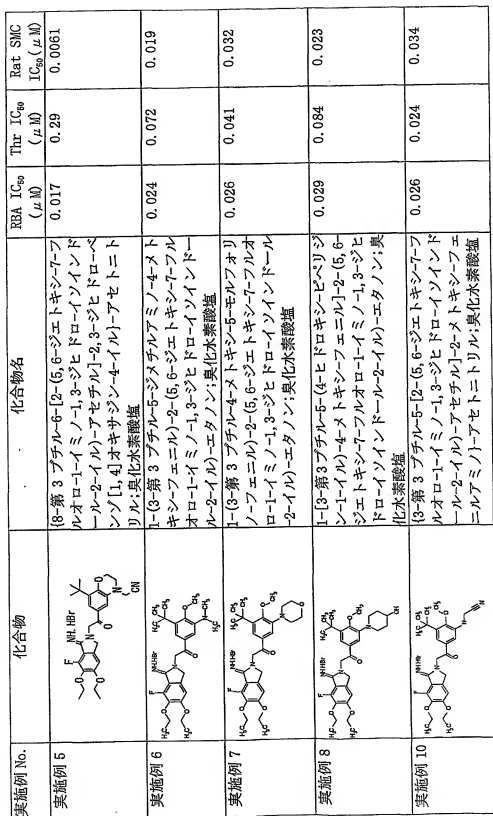 実施例 No.
化合物
化合物名
RBA IC50
(μM)
Thr IC50
(μM)
Rat SMC
IC50(μM)
実施例 5
NH. HBr
F
O
O
N
O
O
N
CN
{8-第 3 ブチル-6-[2-(5,6-ジエトキシ-7-フ
ルオロ-1-イミノ-1,3-ジヒドロ-イソインド
ール-2-イル)-アセチル]-2,3-ジヒドロ-ベ
ンゾ[1,4]オキサジン-4-イル}-アセトニト
リル;臭化水素酸塩
0.017
0.29
0.0061
実施例 6
1-(3-第 3 ブチル-5-ジメチルアミノ-4-メト
キシ-フェニル)-2-(5,6-ジエトキシ-7-フル
オロ-1-イミノ-1,3-ジヒドロ-イソインドー
ル-2-イル)-エタノン;臭化水素酸塩
0.024
0.072
0.019
実施例 7
1-(3-第 3 ブチル-4-メトキシ-5-モルフォリ
ノ-フェニル)-2-(5,6-ジエトキシ-7-フルオ
ロ-1-イミノ-1,3-ジヒドロ-イソインドール
-2-イル)-エタノン;臭化水素酸塩
0.026
0.041
0.032
実施例 8
1-[3-第 3 ブチル-5-(4-ヒドロキシ-ピペリジ
ン-1-イル)-4-メトキシ-フェニル]-2-(5,6-
ジエトキシ-7-フルオロ-1-イミノ-1,3-ジヒ
ドロ-イソインドール-2-イル)-エタノン;臭
化水素酸塩
0.029
0.084
0.023
実施例 10
{3-第 3 ブチル-5-[2-(5,6-ジエトキシ-7-フ
ルオロ-1-イミノ-1,3-ジヒドロ-イソインド
ール-2-イル)-アセチル]-2-メトキシ-フェ
ニルアミノ}-アセトニトリル;臭化水素酸塩
0.026
0.024
0.034